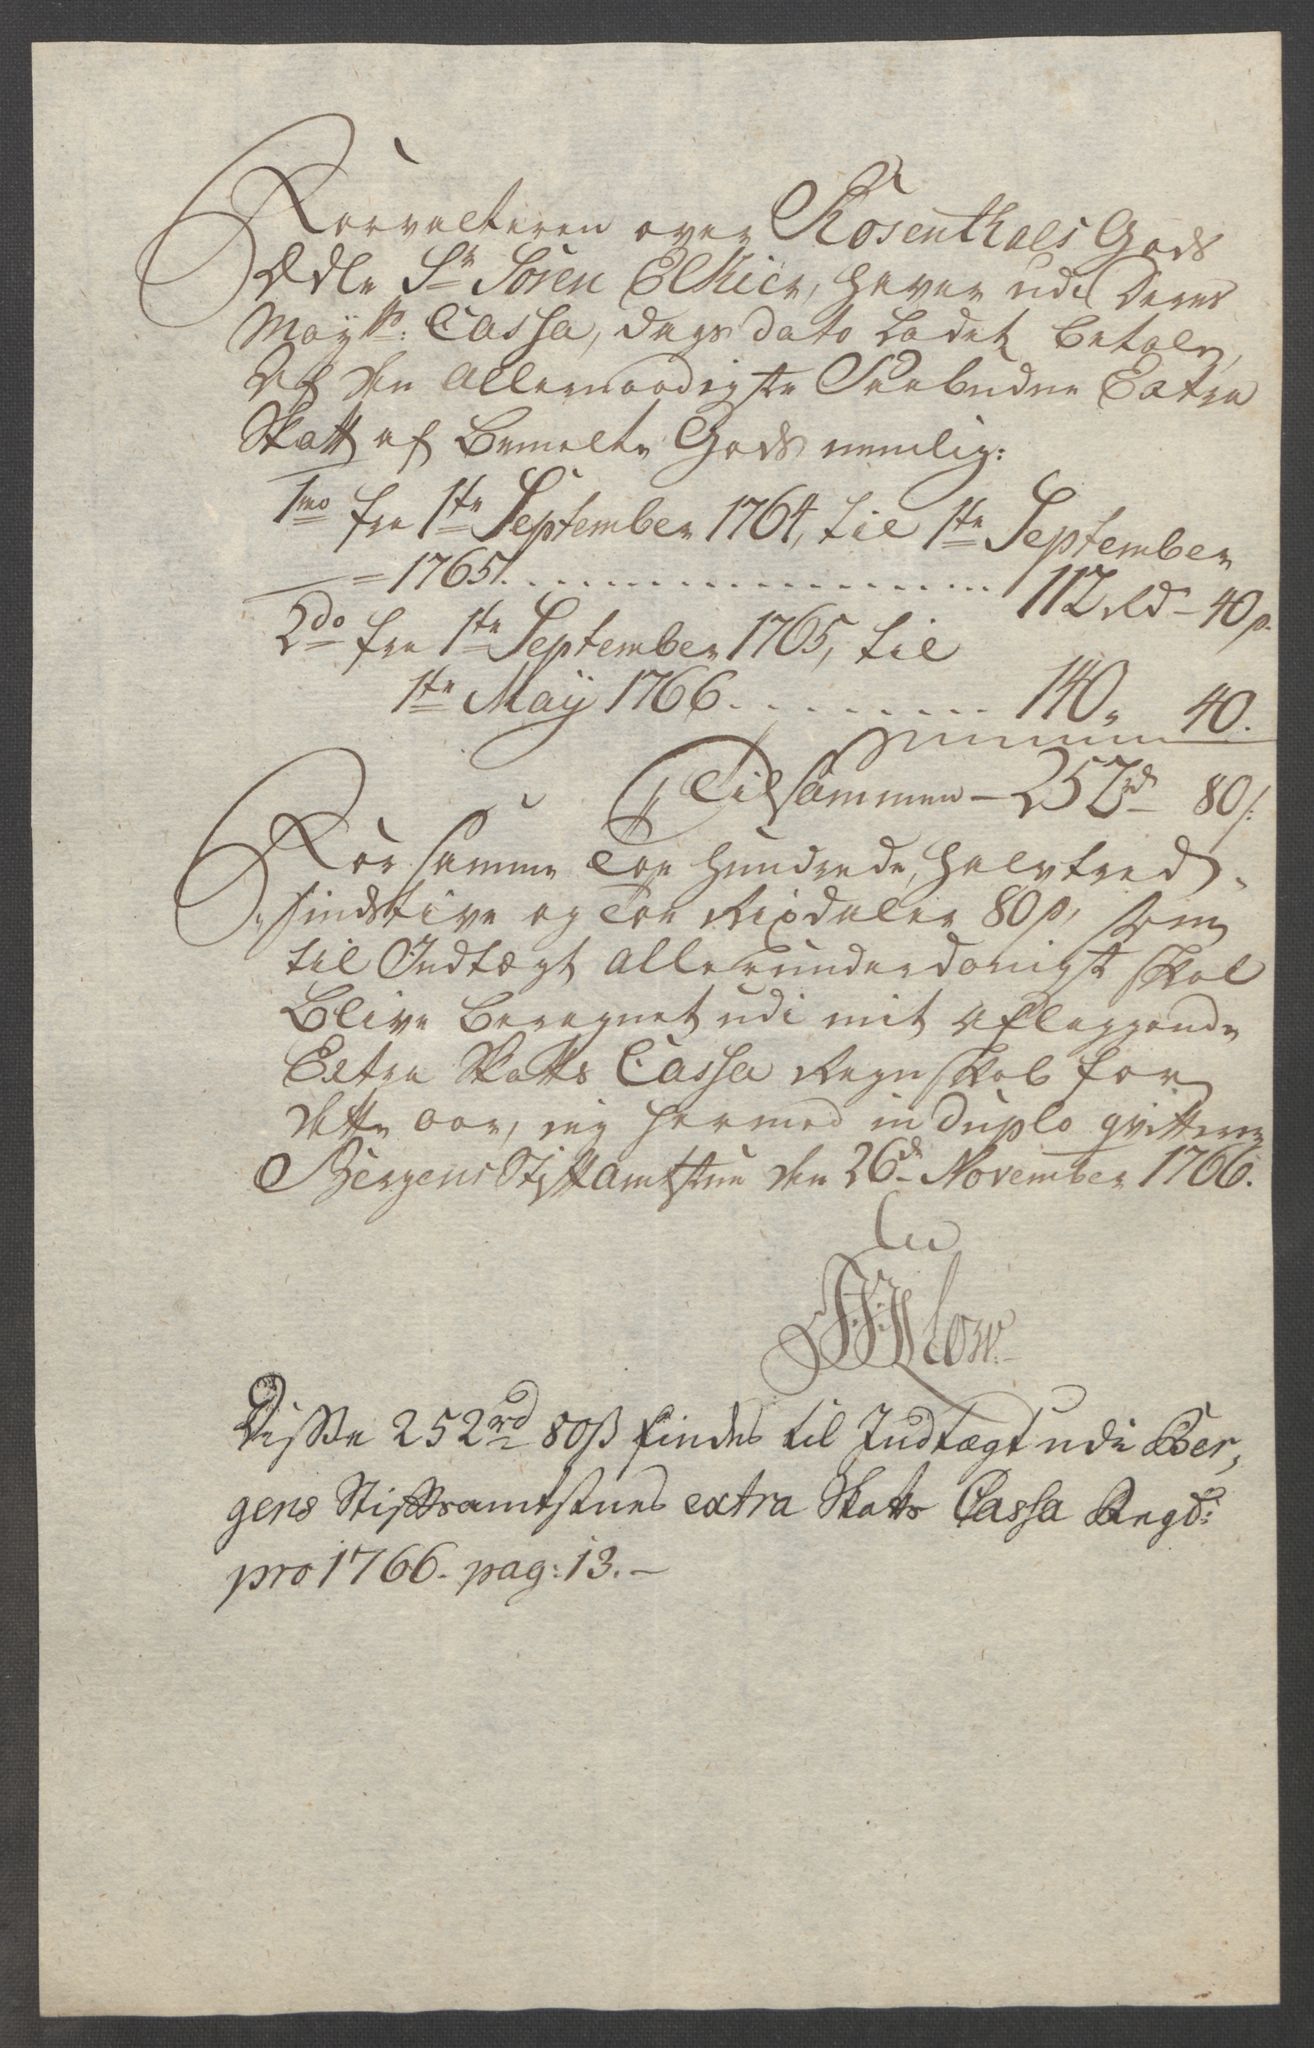 Forvalteren over Rosenthals Gods
Ædle Sr Sören Elkier, haver udi Deres
Mayts: Cassa, dags dato ladet betale,
Af den Allernaadigste Paabudne Extra
Skatt af bemelte Gods nemlig:
1mo fra 1ste September 1764, til 1ste September
1765. . . . . . . . . . 112 Rd – 40 s.
2do fra 1ste September 1765, til
1ste Maÿ 1766 . . . . . . . 140 „ 40.
Tilsammen – 252 rd 80 s:
For samme Toe hundrede, halvtred-
sindstive og Toe Rixdaler 80 s, som
til Indtægt allerunderdanigst skal
blive beregnet udi mit aflæggende
Extra Skatts Cassa Regnskab for
dette aar, jeg hermed in duplo qvitterer
Bergens Stiftamtstue den 26de November 1766.
Disse 252 rd 80 ß findes til Indtægt udi Ber,
gens Stiftsamtstues extra Skatts Cassa Regsk:
pro 1766. pag: 13. –